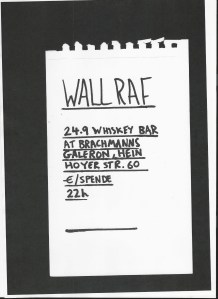 WALLRAF
24.9 WHISKEY BAR
AT BRACHMANNS
GALERON, HEIN
HOYER STR. 60
€/SPENDE
22h